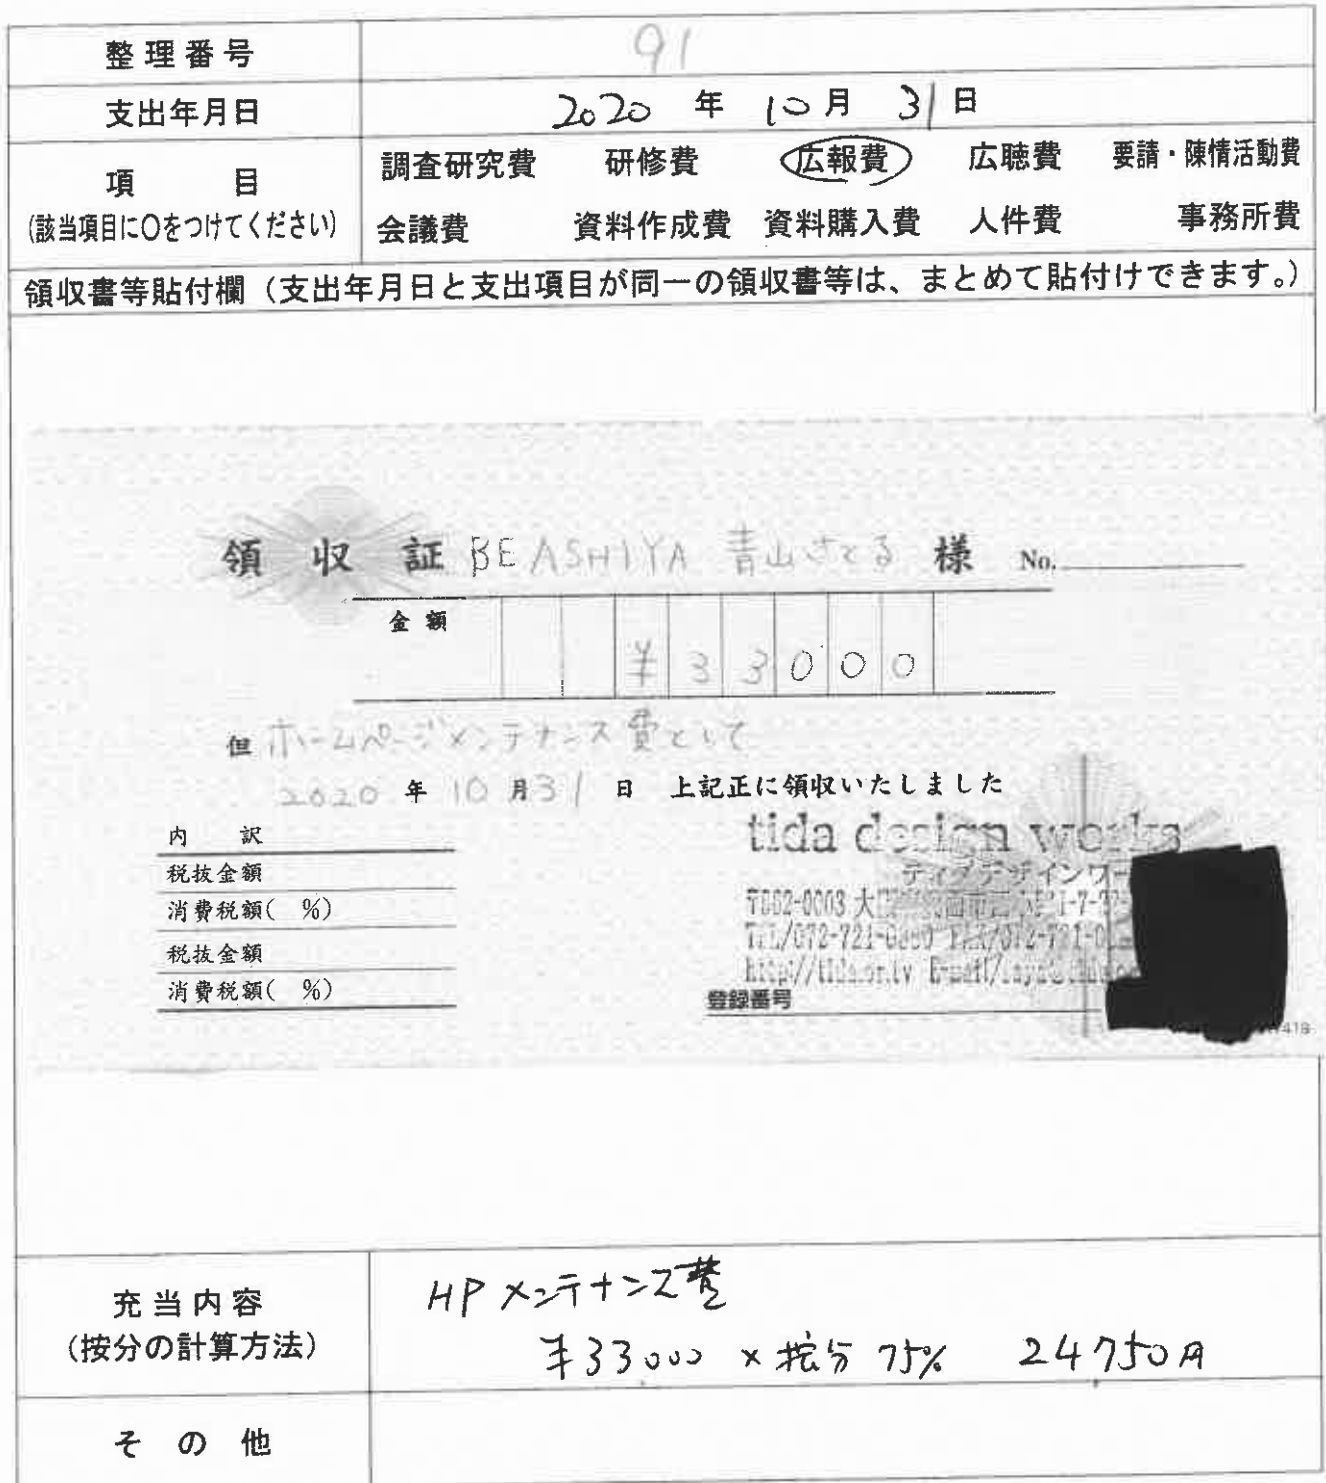 整理番号 91
支出年月日 2020 年 10 月 31 日
項 目
(該当項目に○をつけてください)
調査研究費 研修費 広報費 広聴費 要請・陳情活動費
会議費 資料作成費 資料購入費 人件費 事務所費
領収書等貼付欄(支出年月日と支出項目が同一の領収書等は、まとめて貼付けできます。)
領収証 BE ASHIYA 青山さとる 様 No.
金額 ¥33000
但 ホームページメンテナンス費として
2020 年 10 月 31 日 上記正に領収いたしました
内 訳
税抜金額
消費税額( %)
税抜金額
消費税額( %)
tida design works
ティダデザインワー
登録番号
充当内容
(按分の計算方法)
HPメンテナンス費
¥33000 × 按分 75% 24750円
その他